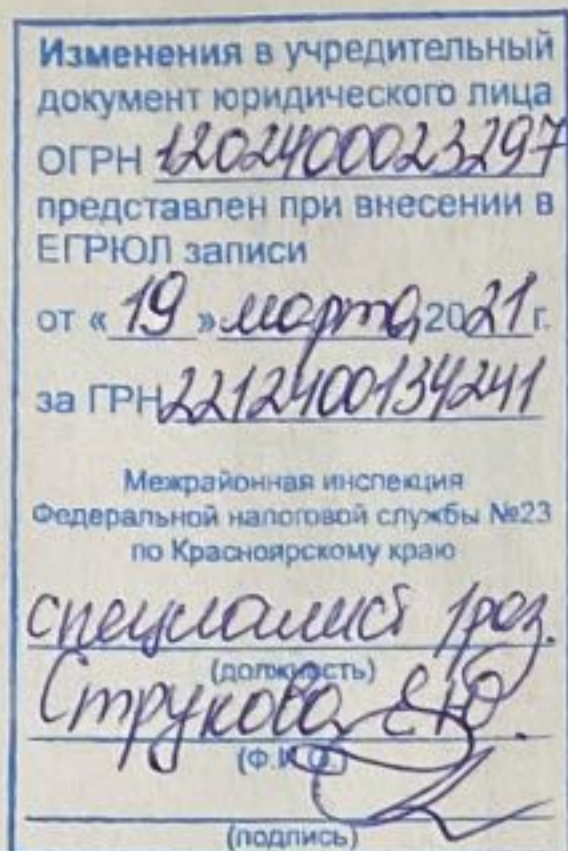 Изменения в учредительный
документ юридического лица
ОГРН 1202400023297
представлен при внесении в
ЕГРЮЛ записи
от «19» марта 2021 г.
за ГРН 2212400134241
Межрайонная инспекция
Федеральной налоговой службы №23
по Красноярскому краю
специалист 1 раз.
(должность)
Струкова Е.Ю.
(Ф.И.О.)
(подпись)